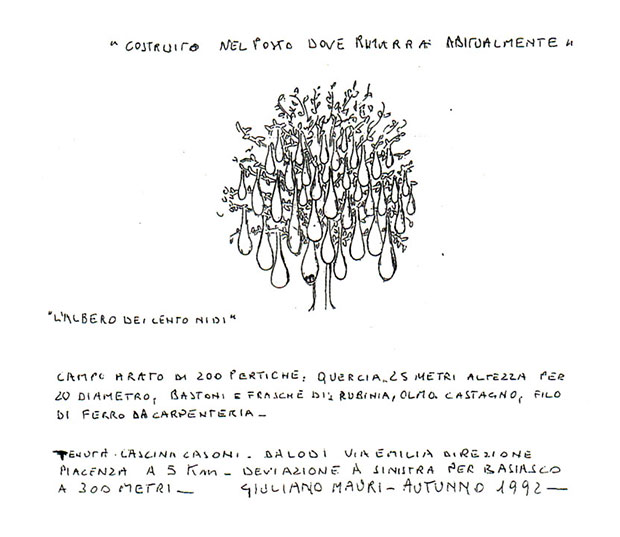 "COSTRUITO NEL POSTO DOVE RIMARRÀ ABITUALMENTE"
"L'ALBERO DEI CENTO NIDI"
CAMPO ARATO DI 200 PERTICHE, QUERCIA 25 METRI ALTEZZA PER
20 DIAMETRO, BASTONI E FRASCHE DI: RUBINIA, OLMO, CASTAGNO, FILO
DI FERRO DA CARPENTERIA -
TENUTA - CASCINA CASONI - DA LODI VIA EMILIA DIREZIONE
PIACENZA A 5 Km - DEVIAZIONE A SINISTRA PER BASIASCO
A 300 METRI - GIULIANO MAURI - AUTUNNO 1992 -